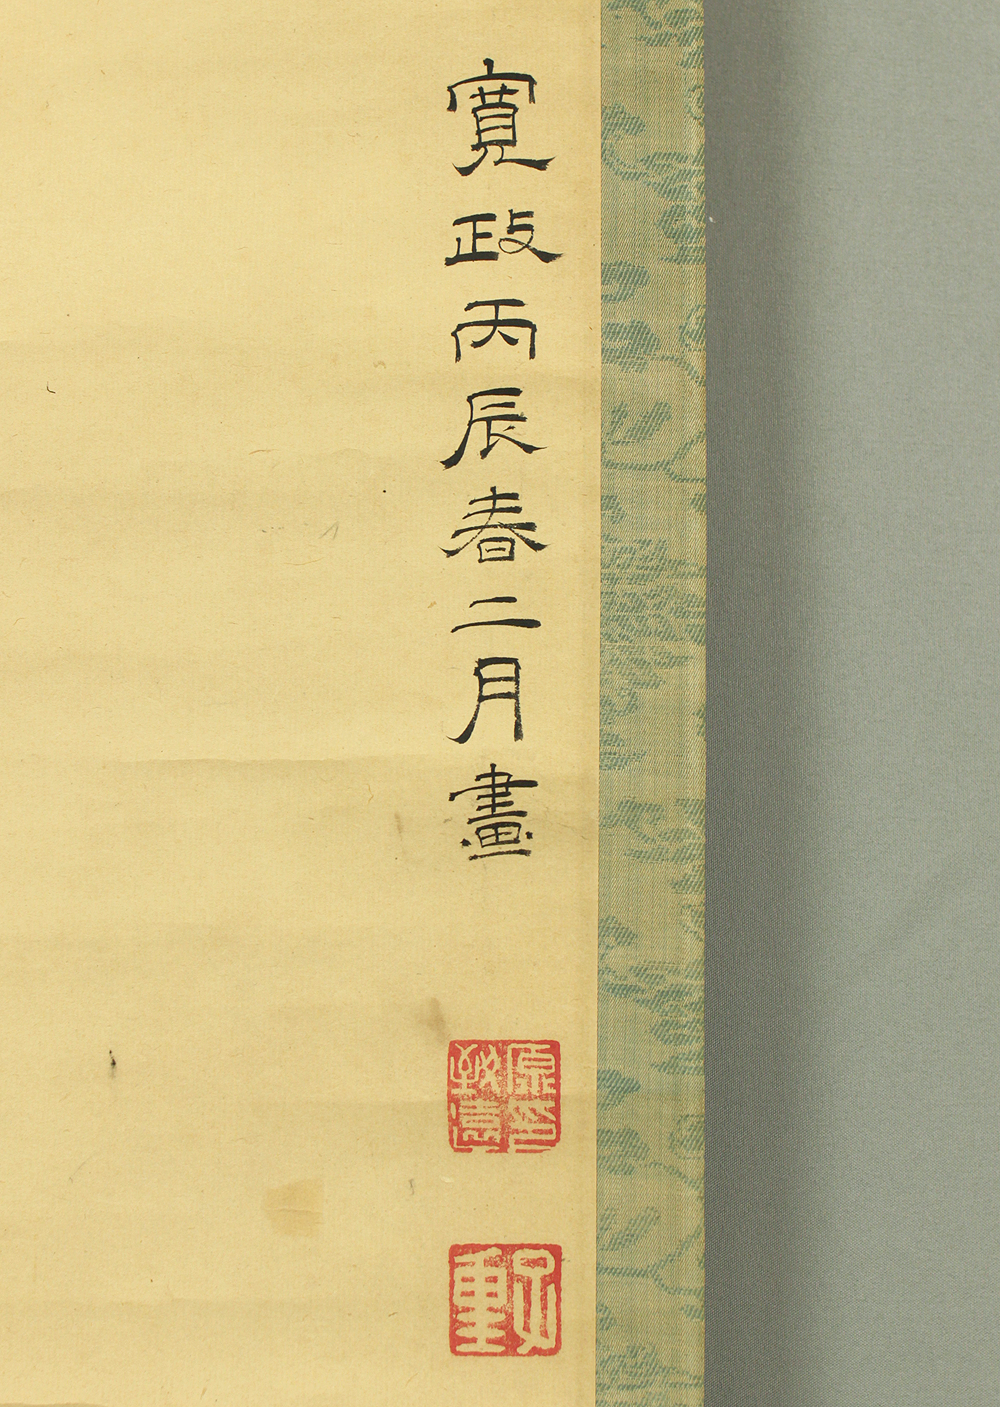 寛政丙辰春二月畫